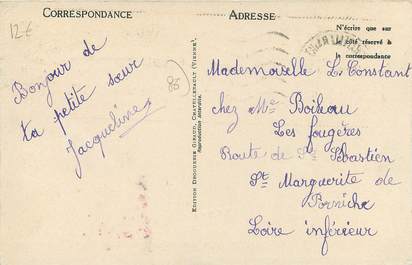 12€
CORRESPONDANCE
ADRESSE
N'écrire que sur
le côté réservé à
la correspondance
Bonjour de
ta petite sœur
Jacqueline
Mademoiselle L. Constant
chez Me Boileau
Les fougères
Route de St Sébastien
Ste Marguerite de
Pornichet
Loire inférieur
ÉDITION DROGUESSE GIRAUD, CHATELLERAULT (VIENNE).
Reproduction interdite.